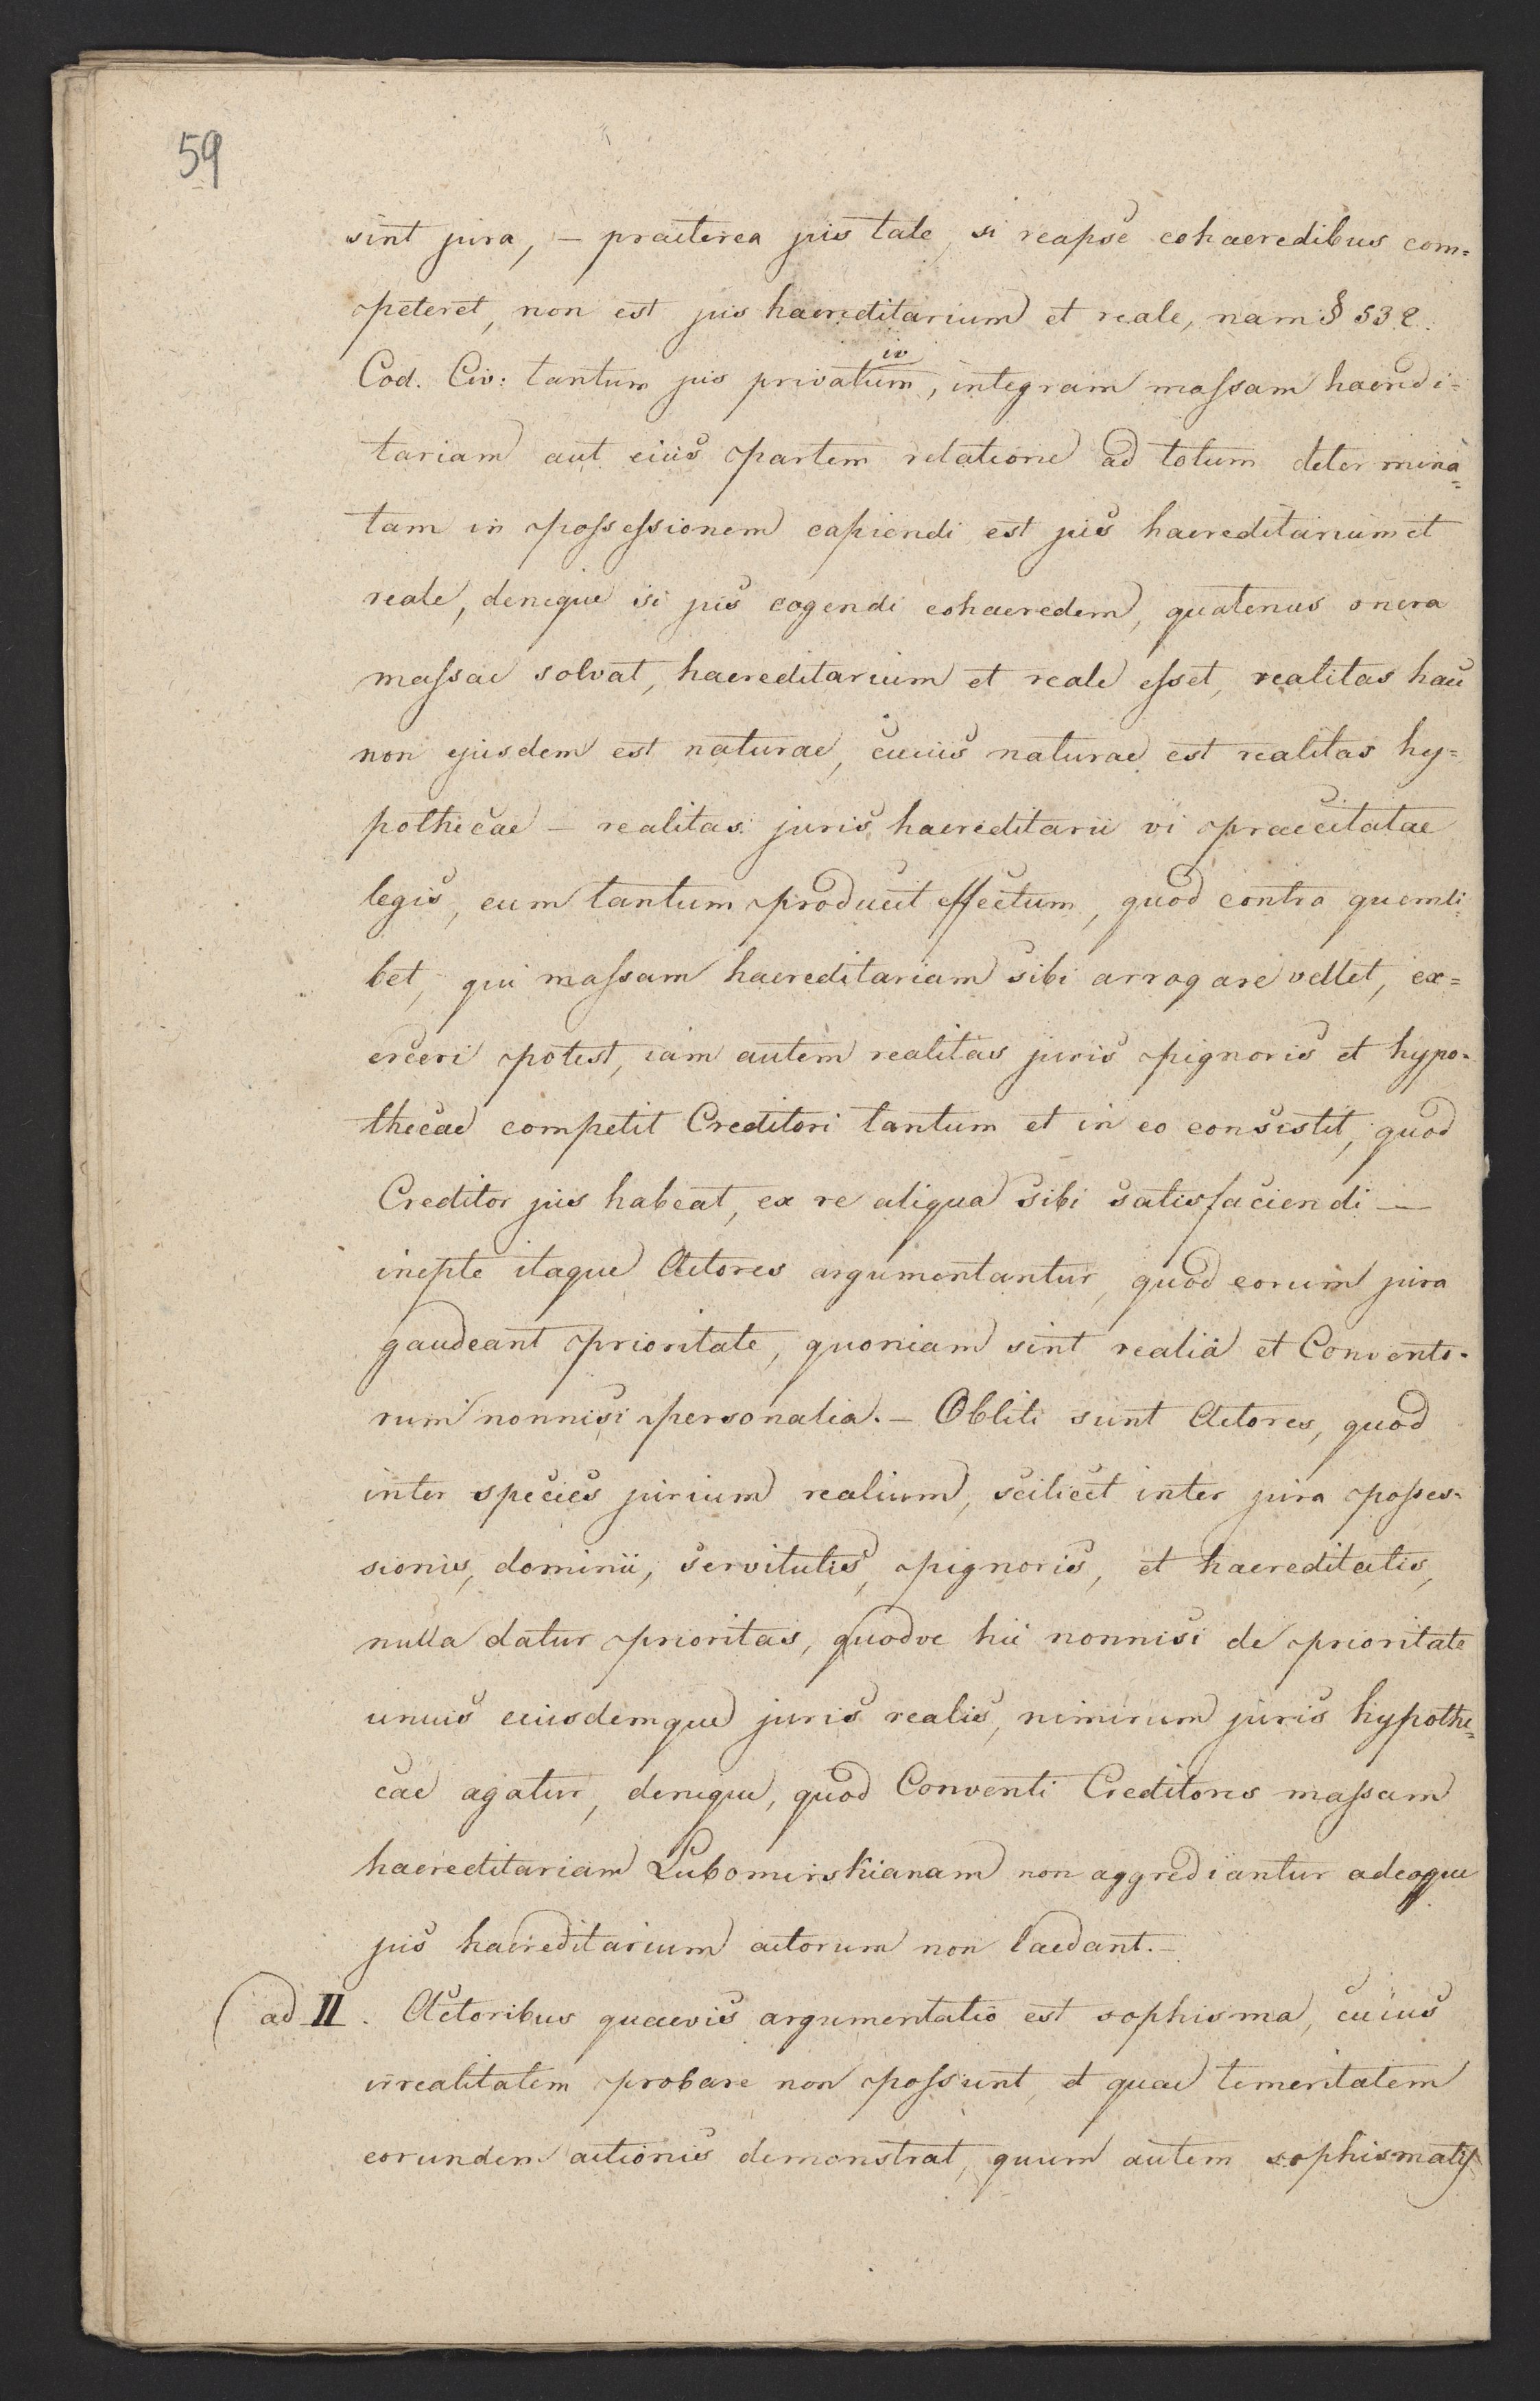 59
sint jura, – praeterea jus tale, si reapse cohaeredibus com=
peteret, non est jus haereditarium et reale, nam § 532.
Cod. Civ: tantum jus privatum, integram massam haeredi=
iv
tariam aut eius partem relatione ad totum determina=
tam in possessionem capiendi est jus haereditarium et
reale, denique si jus cogendi cohaeredem, quatenus onera
massae solvat, haereditarium et reale esset, realitas haec
non ejusdem est naturae, cuius naturae est realitas hy=
pothecae – realitas juris haereditarii vi praecitatae
legis, eum tantum producit effectum, quod contra quemli=
bet, qui massam haereditariam sibi arrogare vellet, ex=
erceri potest, iam autem realitas juris pignoris et hypo=
thecae competit Creditori tantum et in eo consistit, quod
Creditor jus habeat, ex re aliqua sibi satisfaciendi —
inepte itaque Actores argumentantur, quod eorum jura
gaudeant prioritate, quoniam sint realia et Convento=
rum nonnisi personalia. – Obliti sunt Actores, quod
inter species jurium realium, scilicet inter jura posses=
sionis, dominii, servitutis, pignoris, et haereditatis,
nulla datur prioritas, quodve hic nonnisi de prioritate
unuis eiusdemque juris realis, nimirum juris hypothe=
cae agatur, denique, quod Conventi Creditores massam
haereditariam Lubomirskianam non aggrediantur adeoque
jus haereditarium actorum non laedant. –
(ad II. Actoribus quaevis argumentatio est sophisma, cuius
irrealitatem probare non possunt, et quae temeritatem
eorundem actionis demonstrat, quum autem sophismatis